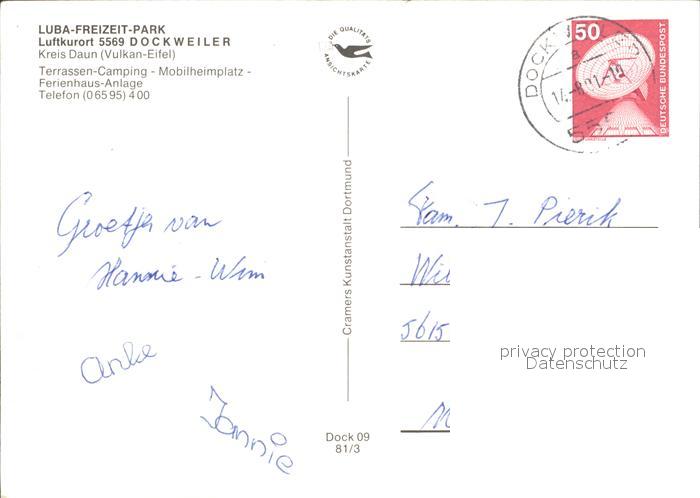 LUBA-FREIZEIT-PARK
Luftkurort 5569 DOCKWEILER
Kreis Daun (Vulkan-Eifel)
Terrassen-Camping - Mobilheimplatz -
Ferienhaus-Anlage
Telefon (0 65 95) 4 00
DIE QUALITÄTS
ANSICHTSKARTE
50
DEUTSCHE BUNDESPOST
Cramers Kunstanstalt Dortmund
Groetjes van
Hannie - Wim
Anke
Jannie
Fam. J. Pierik
Wil
5615
M
privacy protection
Datenschutz
Dock 09
81/3